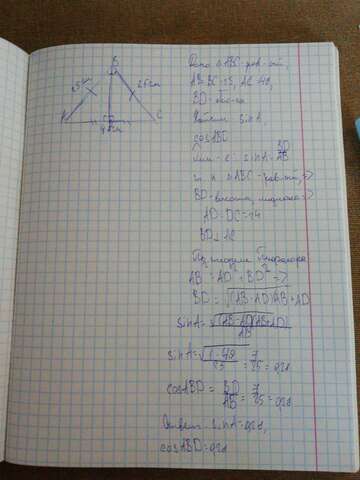 B
25см
25см
A
C
48см
Дано △ABC-рав-ст,
AB=BC=25, AC=48,
BD-
Найти sinA,
cosABD
sinA = BD/AB
т. к △ABC-
BD-высота, медиана=>
AD=DC=
BD⊥AC
По теореме Пифагора
AB²=AD²+BD²=>
BD=√(AB-AD)(AB+AD)
sinA=√(AB-AD)(AB+AD)/AB
sinA=√1·49/25=7/25=0,28
cosABD=BD/AB=7/25=0,28
Ответ: sinA=0,28,
cosABD=0,28